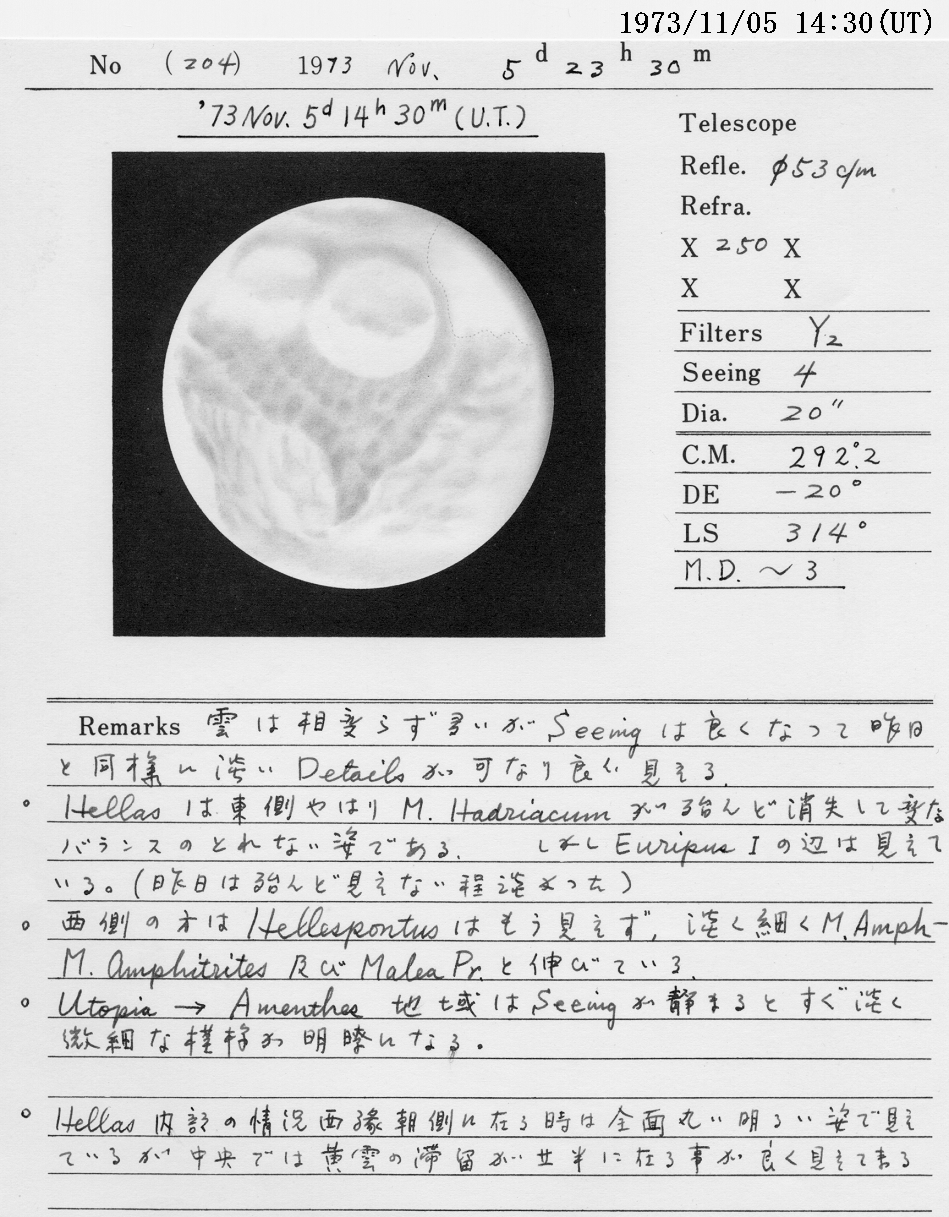 1973/11/05 14:30(UT)
No (204) 1973 Nov. 5d 23h 30m
'73 Nov. 5d 14h 30m (U.T.)
Telescope
Refle. φ53 c/m
Refra.
X 250 X
X X
Filters Y2
Seeing 4
Dia. 20"
C.M. 292.°2
DE -20°
LS 314°
M.D. ~3
Remarks 雲は相変らず多いが Seeing は良くなって昨日
と同様に淡い Details が可なり良く見える.
○ Hellas は東側やはり M. Hadriacum が殆んど消失して変な
バランスのとれない姿である. しかし Euripus I の辺は見えて
いる。(昨日は殆んど見えない程淡かった)
○ 西側の方は Hellespontus はもう見えず, 淡く細く M. Amph-
M. Amphitrites 及び Malea Pr. と伸びている.
○ Utopia → Amenthes 地域は Seeing が静まるとすぐ淡く
微細な模様が明瞭になる。
○ Hellas 内部の情況西縁朝側に在る時は全面丸い明るい姿で見え
ているが中央では黄雲の滞留が に在る事が良く見えて来る